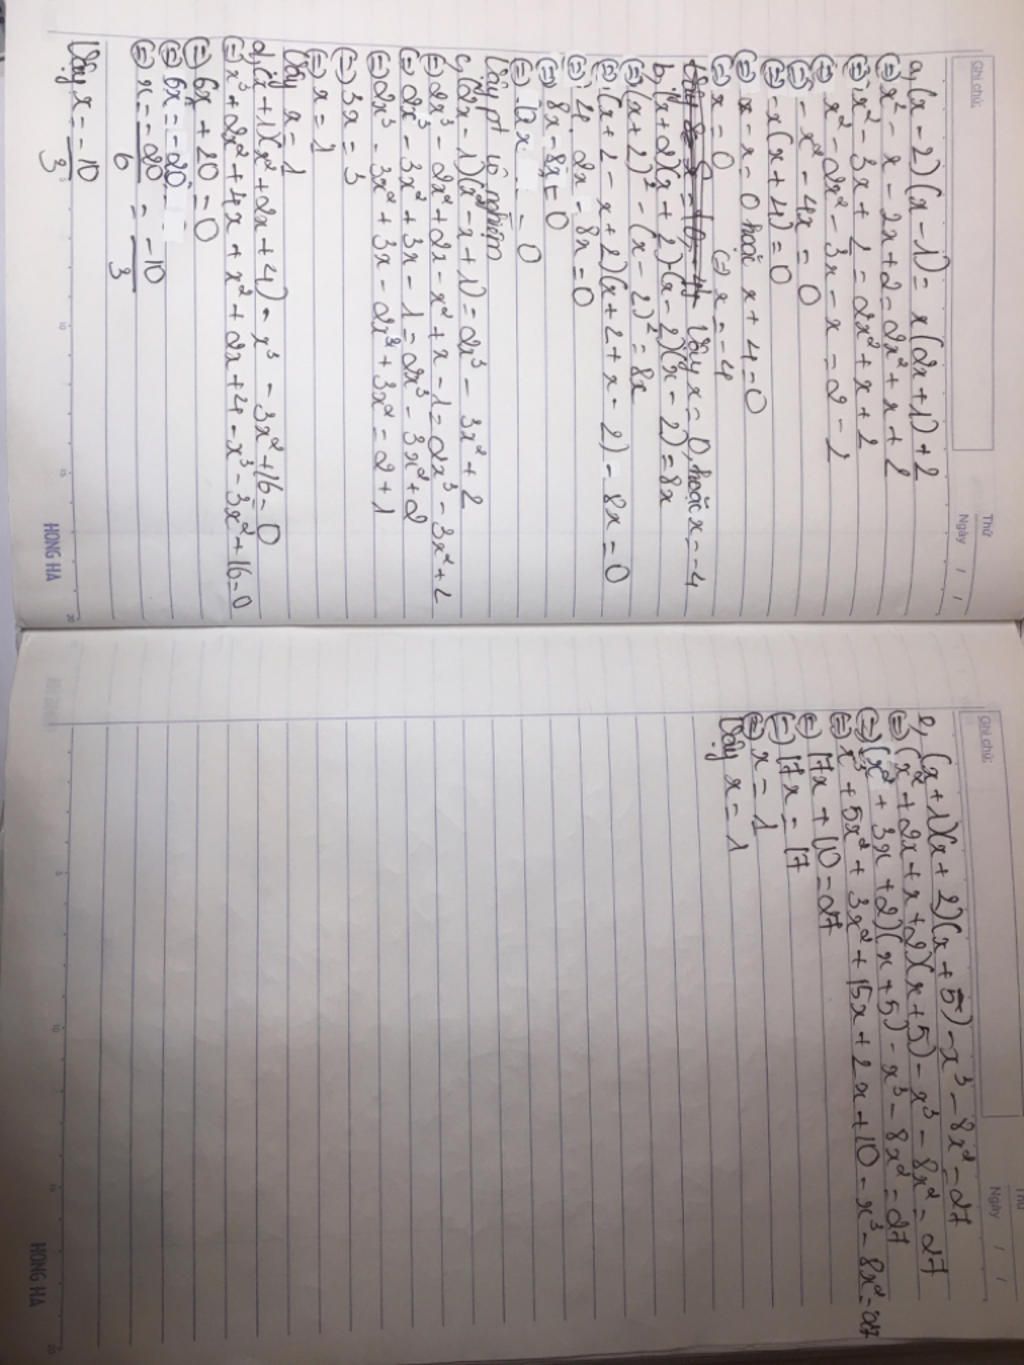 Ghi chú:
Thứ
Ngày / /
a, (x - 2)(x - 1) = x(2x + 1) + 2
⇔ x² - x - 2x + 2 = 2x² + x + 2
⇔ x² - 3x + 2 = 2x² + x + 2
⇔ x² - 2x² - 3x - x = 2 - 2
⇔ - x² - 4x = 0
⇔ - x(x + 4) = 0
⇔ - x = 0 hoặc x + 4 = 0
⇔ x = 0 ⇔ x = -4
Vậy x = 0, hoặc x = -4
b, (x + 2)(x + 2) - (x - 2)(x - 2) = 8x
⇔ (x + 2)² - (x - 2)² = 8x
⇔ (x + 2 - x + 2)(x + 2 + x - 2) - 8x = 0
⇔ 4. 2x - 8x = 0
⇔ 8x - 8x = 0
⇔ 0x = 0
Vậy pt vô nghiệm
c, (2x - 1)(x² - x + 1) = 2x³ - 3x² + 2
⇔ 2x³ - 2x² + 2x - x² + x - 1 = 2x³ - 3x² + 2
⇔ 2x³ - 3x² + 3x - 1 = 2x³ - 3x² + 2
⇔ 2x³ - 3x² + 3x - 2x³ + 3x² = 2 + 1
⇔ 3x = 3
⇔ x = 1
Vậy x = 1
d, (x + 1)(x² + 2x + 4) - x³ - 3x² + 16 = 0
⇔ x³ + 2x² + 4x + x² + 2x + 4 - x³ - 3x² + 16 = 0
⇔ 6x + 20 = 0
⇔ 6x = -20
⇔ x = -20/6 = -10/3
Vậy x = -10/3
HONG HA
Ghi chú:
Thứ
Ngày / /
e, (x + 1)(x + 2)(x + 5) - x³ - 8x² = 27
⇔ (x² + 2x + x + 2)(x + 5) - x³ - 8x² = 27
⇔ (x² + 3x + 2)(x + 5) - x³ - 8x² = 27
⇔ x³ + 5x² + 3x² + 15x + 2x + 10 - x³ - 8x² = 27
⇔ 17x + 10 = 27
⇔ 17x = 17
⇔ x = 1
Vậy x = 1
HONG HA